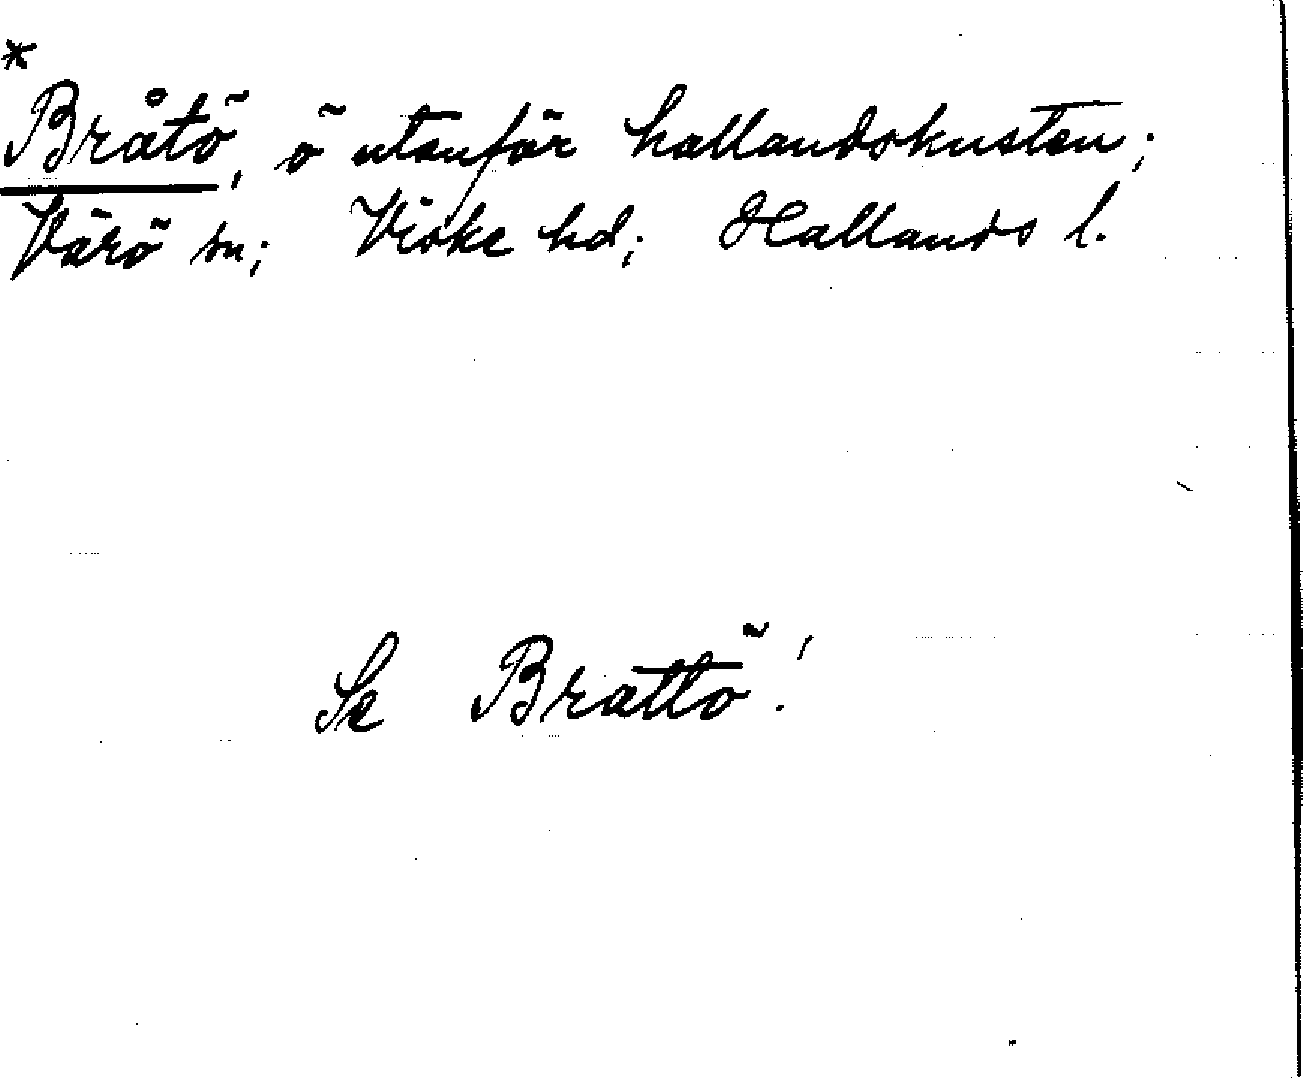 *
Bråtö, ö utanför hallandskusten;
Värö sn; Viske hd; Hallands l.
Se Brattö!